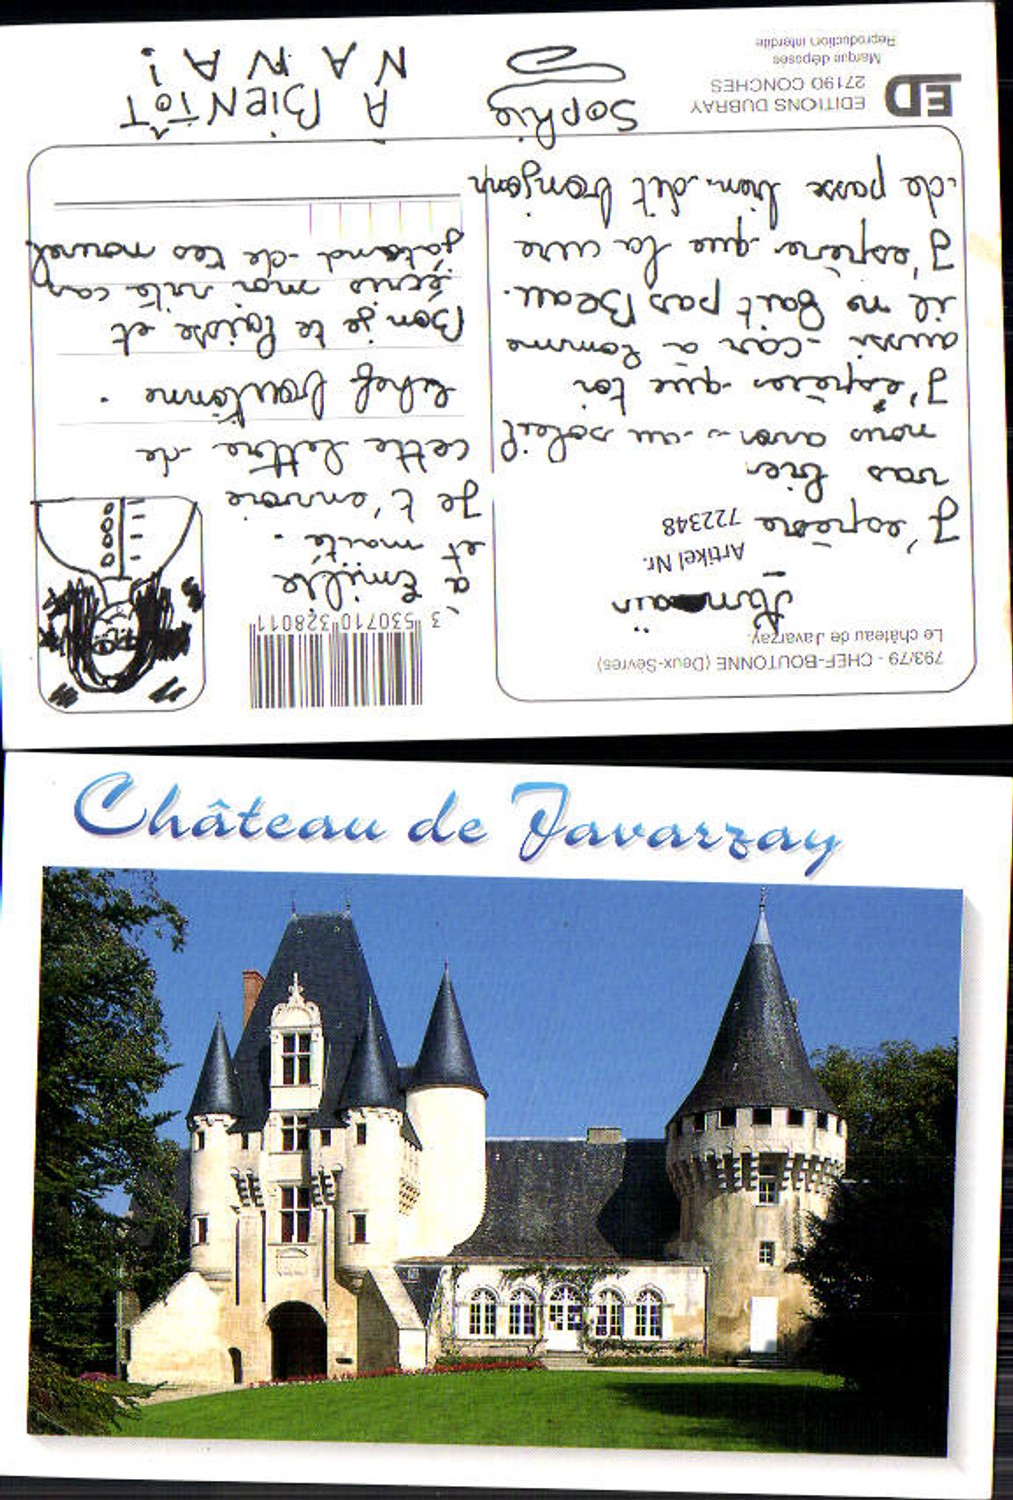 793/79 - CHEF-BOUTONNE (Deux-Sèvres)
Le château de Javarzay.
Artikel Nr.
722348
J'espère
vas bien
nous avons au soleil
J'espères que toi
aussi car a Romme
il ne fait pas Beau.
J'espère que la cure
de passe bien. dit bonjour
3 530710 328011
a Emilie
et maité.
Je t'envoie
cette lettre de
chef boutonne.
Bon je te laisse et
écris moi vite car
j'atend de tes nouvel
ED
EDITIONS DUBRAY
27190 CONCHES
Marque déposée
Reproduction interdite
Sophie
A BIENTÔT
NANA!
Château de Javarzay